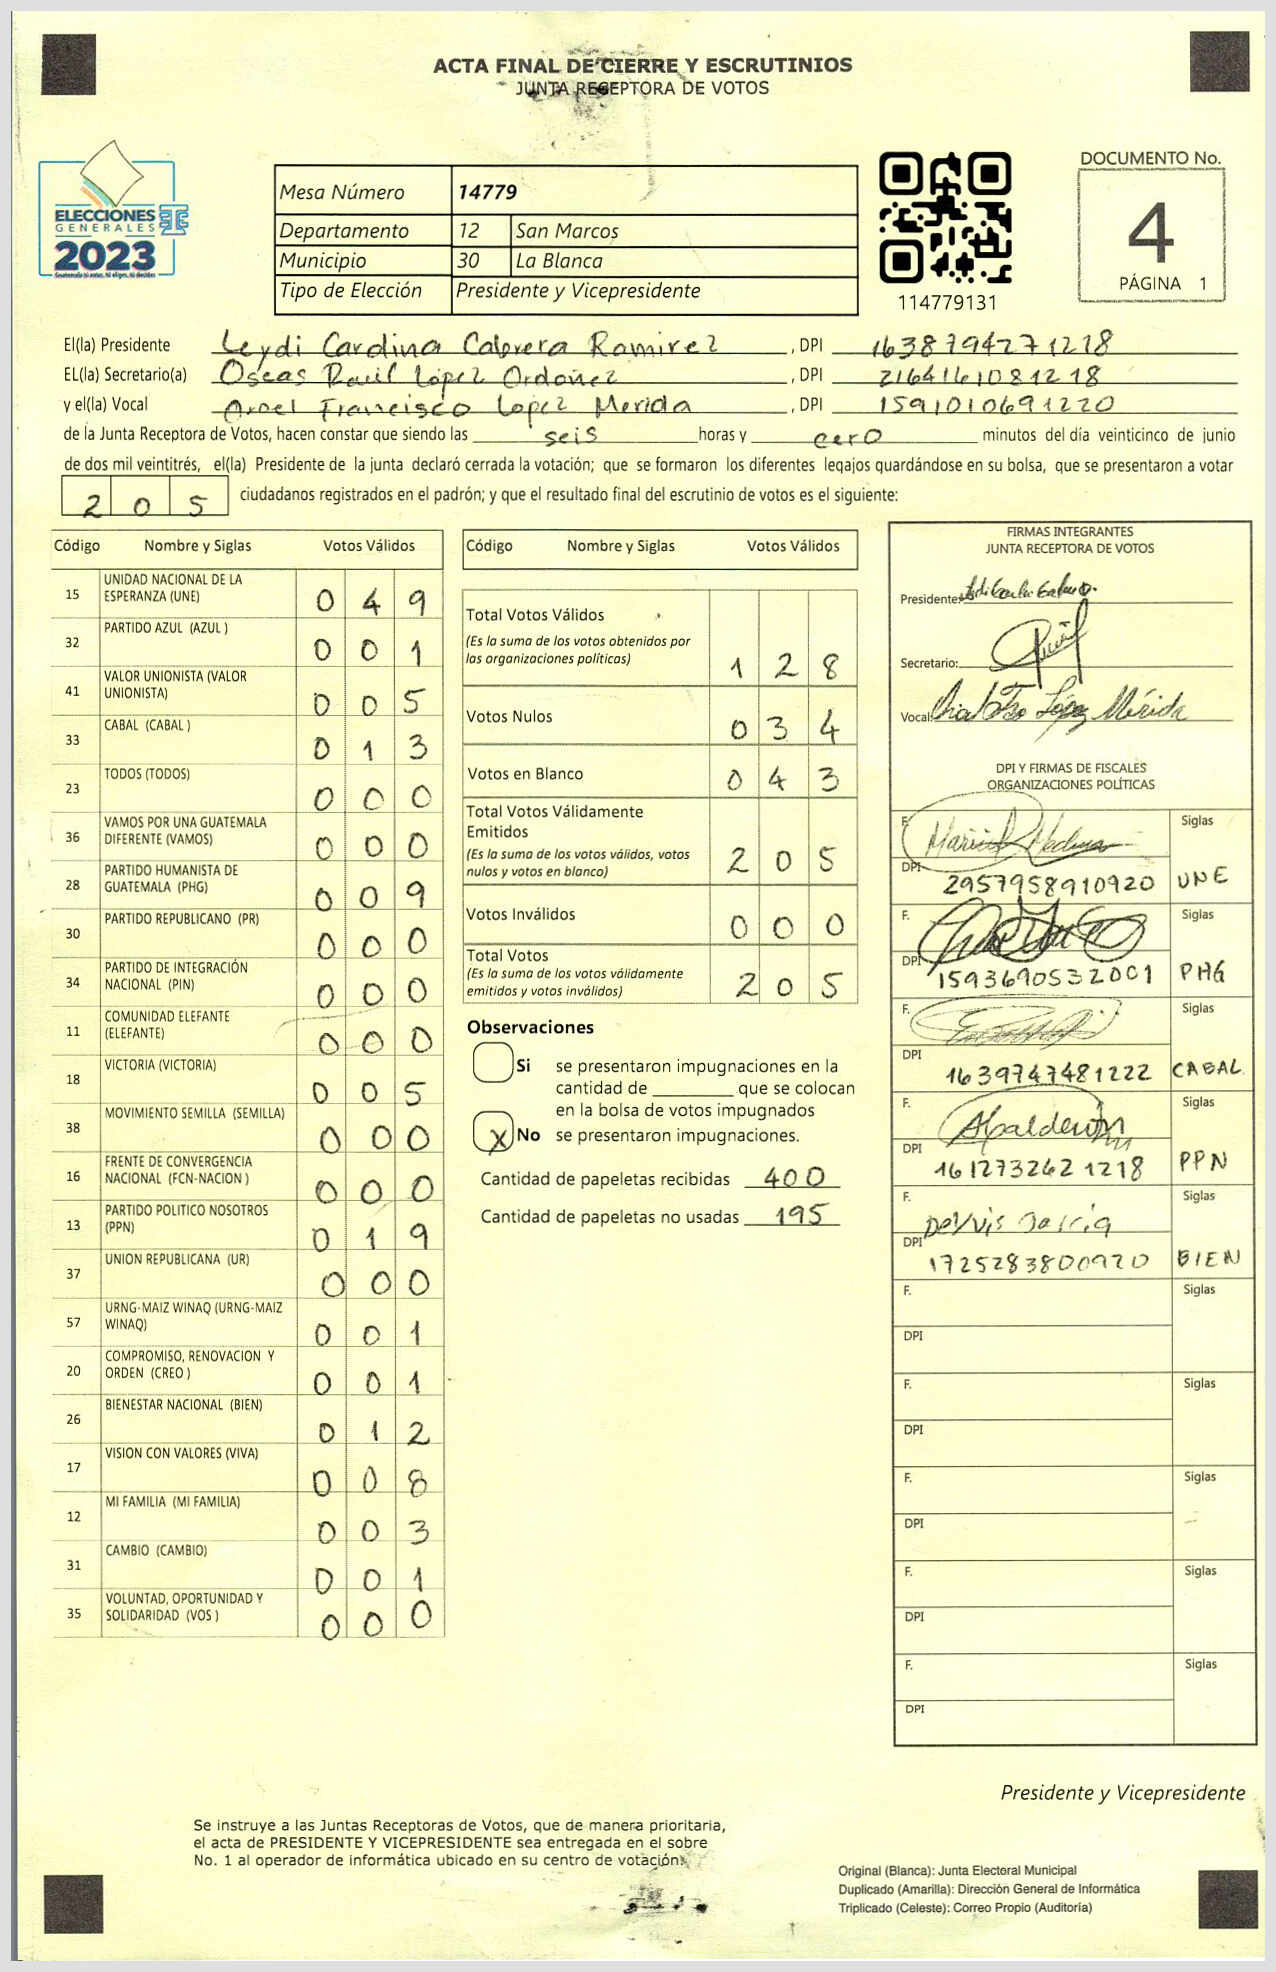 ACTA FINAL DE CIERRE Y ESCRUTINIOS
JUNTA RECEPTORA DE VOTOS
ELECCIONES
GENERALES
2023
Mesa Número 14779
Departamento 12 San Marcos
Municipio 30 La Blanca
Tipo de Elección Presidente y Vicepresidente
114779131
DOCUMENTO No.
4
PÁGINA 1
El(la) Presidente Leydi Cardina Cabrera Ramirez, DPI 1638794271218
EL(la) Secretario(a) Oseas Raúl López Ordoñez, DPI 2164161081218
y el(la) Vocal Francisco López Merida, DPI 1591010691220
de la Junta Receptora de Votos, hacen constar que siendo las seis horas y cero minutos del día veinticinco de junio
de dos mil veintitrés, el(la) Presidente de la junta declaró cerrada la votación; que se formaron los diferentes legajos quardándose en su bolsa, que se presentaron a votar
205 ciudadanos registrados en el padrón; y que el resultado final del escrutinio de votos es el siguiente:
Código Nombre y Siglas Votos Válidos
15 UNIDAD NACIONAL DE LA ESPERANZA (UNE) 049
32 PARTIDO AZUL (AZUL ) 001
41 VALOR UNIONISTA (VALOR UNIONISTA) 005
33 CABAL (CABAL ) 013
23 TODOS (TODOS) 000
36 VAMOS POR UNA GUATEMALA DIFERENTE (VAMOS) 000
28 PARTIDO HUMANISTA DE GUATEMALA (PHG) 009
30 PARTIDO REPUBLICANO (PR) 000
34 PARTIDO DE INTEGRACIÓN NACIONAL (PIN) 000
11 COMUNIDAD ELEFANTE (ELEFANTE) 000
18 VICTORIA (VICTORIA) 005
38 MOVIMIENTO SEMILLA (SEMILLA) 000
16 FRENTE DE CONVERGENCIA NACIONAL (FCN-NACION ) 000
13 PARTIDO POLITICO NOSOTROS (PPN) 019
37 UNION REPUBLICANA (UR) 000
57 URNG-MAIZ WINAQ (URNG-MAIZ WINAQ) 001
20 COMPROMISO, RENOVACION Y ORDEN (CREO ) 001
26 BIENESTAR NACIONAL (BIEN) 012
17 VISION CON VALORES (VIVA) 008
12 MI FAMILIA (MI FAMILIA) 003
31 CAMBIO (CAMBIO) 001
35 VOLUNTAD, OPORTUNIDAD Y SOLIDARIDAD (VOS ) 000
Código Nombre y Siglas Votos Válidos
Total Votos Válidos
(Es la suma de los votos obtenidos por
las organizaciones políticas) 128
Votos Nulos 034
Votos en Blanco 043
Total Votos Válidamente
Emitidos
(Es la suma de los votos válidos, votos
nulos y votos en blanco) 205
Votos Inválidos 000
Total Votos
(Es la suma de los votos válidamente
emitidos y votos inválidos) 205
Observaciones
Si se presentaron impugnaciones en la
cantidad de ________ que se colocan
en la bolsa de votos impugnados
X No se presentaron impugnaciones.
Cantidad de papeletas recibidas 400
Cantidad de papeletas no usadas 195
FIRMAS INTEGRANTES
JUNTA RECEPTORA DE VOTOS
Presidente:
Secretario:
Vocal: López Mérida
DPI Y FIRMAS DE FISCALES
ORGANIZACIONES POLÍTICAS
F. Siglas
DPI 2957958910920 UNE
F. Siglas
DPI 1593690532001 PHG
F. Siglas
DPI 1639747481222 CABAL
F. Siglas
DPI 1612732621218 PPN
F. Delvis García Siglas
DPI 1725283800920 BIEN
F. Siglas
DPI
F. Siglas
DPI
F. Siglas
DPI
F. Siglas
DPI
F. Siglas
DPI
Presidente y Vicepresidente
Se instruye a las Juntas Receptoras de Votos, que de manera prioritaria,
el acta de PRESIDENTE Y VICEPRESIDENTE sea entregada en el sobre
No. 1 al operador de informática ubicado en su centro de votación.
Original (Blanca): Junta Electoral Municipal
Duplicado (Amarilla): Dirección General de Informática
Triplicado (Celeste): Correo Propio (Auditoría)